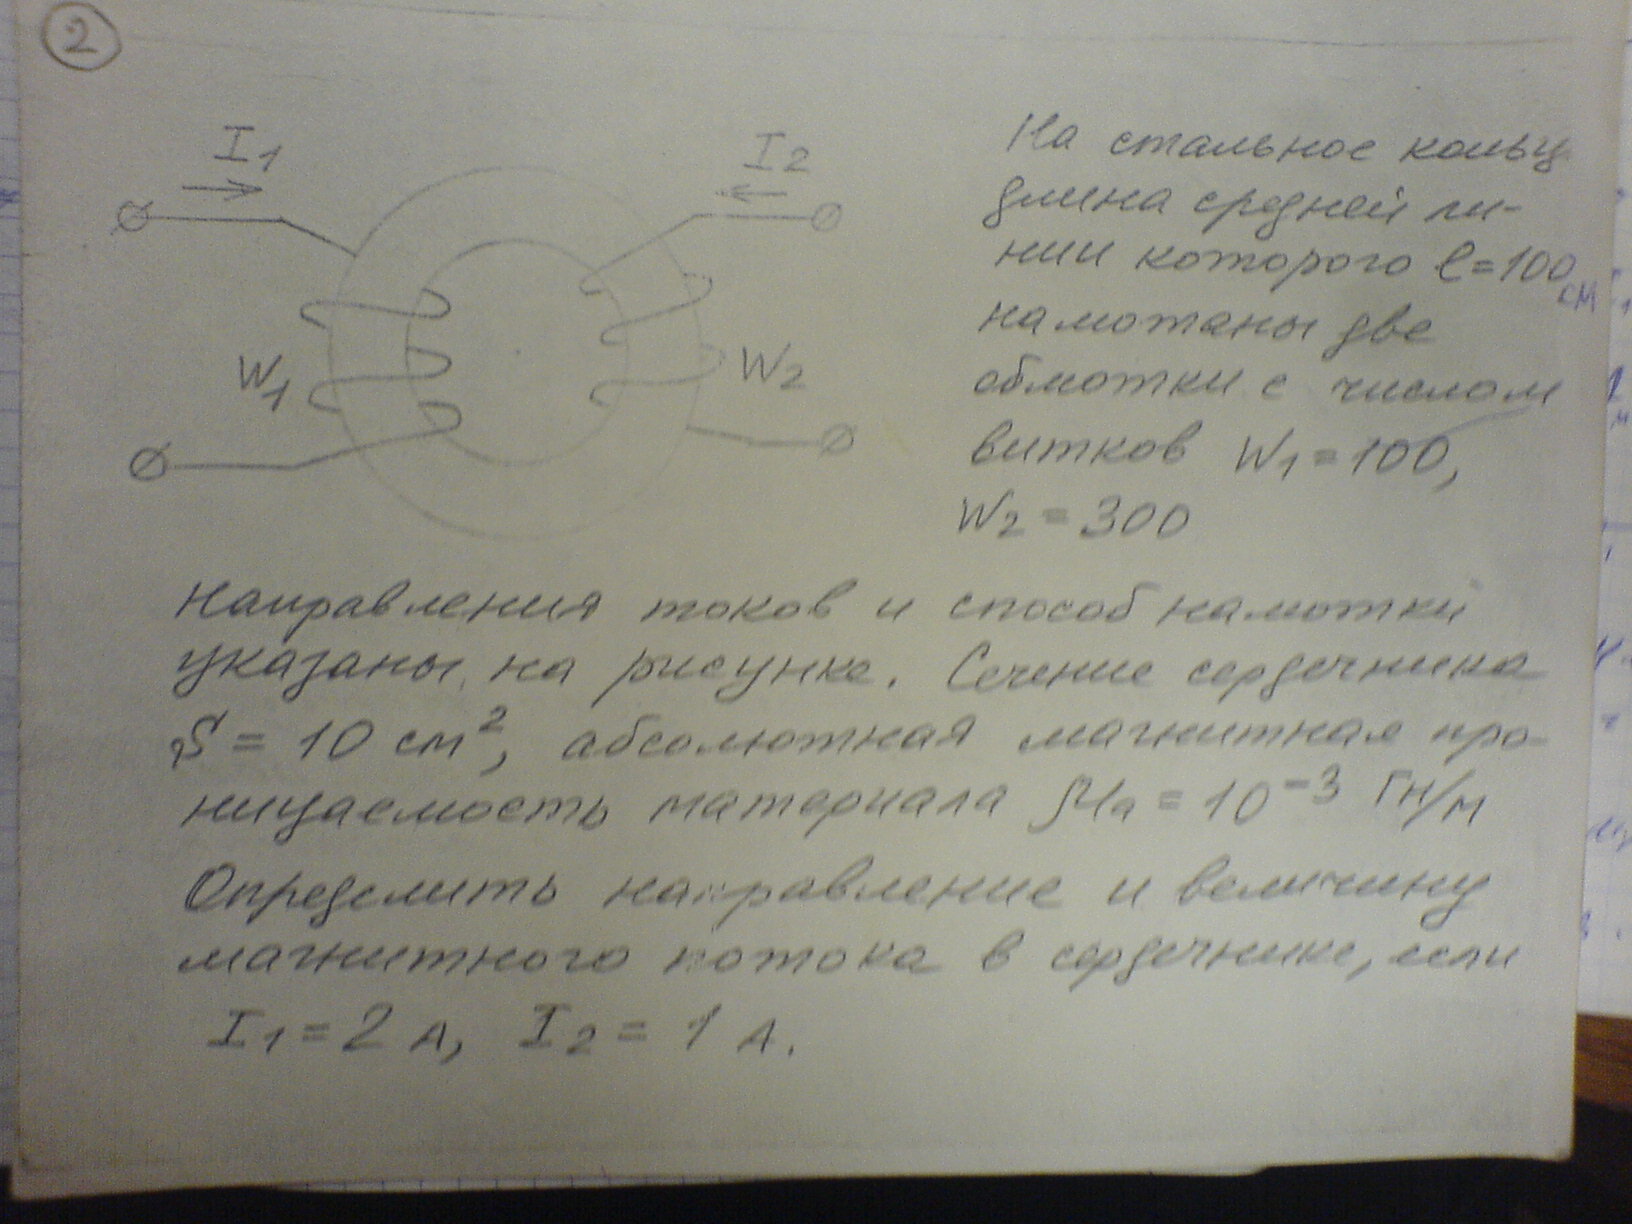 2
I1
I2
W1
W2
На стальное кольцо
длина средней ли-
нии которого l=100 см
намотаны две
обмотки с числом
витков W1=100,
W2=300
Направления токов и способ намотки
указаны на рисунке. Сечение сердечника
S = 10 см², абсолютная магнитная про-
ницаемость материала μа = 10⁻³ Гн/м
Определить направление и величину
магнитного потока в сердечнике, если
I1=2 А, I2=1 А.